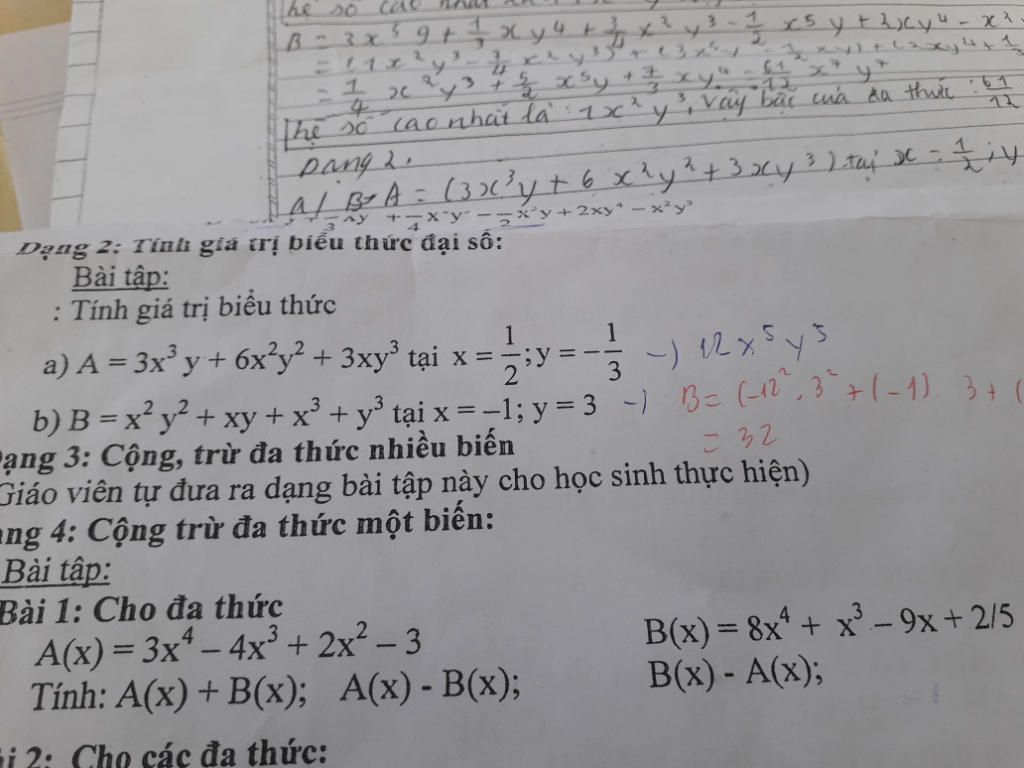 hệ số cao nhất
B = 3x⁵y + 1/3 xy⁴ + 3/4 x²y³ - 1/2 x⁵y + 2xy⁴ - x²
= 1/4 x²y³ + 5/2 x⁵y + 7/3 xy⁴ = 61/12 x⁷ y⁷
hệ số cao nhất là : 1x²y³, vậy bậc của đa thức : 61/12
Dạng 2.
a/ A = (3x³y + 6x²y² + 3xy³) tại x = 1/2 ; y
- 1/2 x⁵y + 2xy⁴ – x²y³
Dạng 2: Tính giá trị biểu thức đại số:
Bài tập:
: Tính giá trị biểu thức
a) A = 3x³y + 6x²y² + 3xy³ tại x = 1/2; y = -1/3 -) 12x⁵y⁵
b) B = x²y² + xy + x³ + y³ tại x = –1; y = 3 -) B = (-1)². 3² + (-1). 3 + (
= 32
ạng 3: Cộng, trừ đa thức nhiều biến
Giáo viên tự đưa ra dạng bài tập này cho học sinh thực hiện)
ng 4: Cộng trừ đa thức một biến:
Bài tập:
Bài 1: Cho đa thức
A(x) = 3x⁴ – 4x³ + 2x² – 3 B(x) = 8x⁴ + x³ – 9x + 2/5
Tính: A(x) + B(x); A(x) - B(x); B(x) - A(x);
i 2: Cho các đa thức: